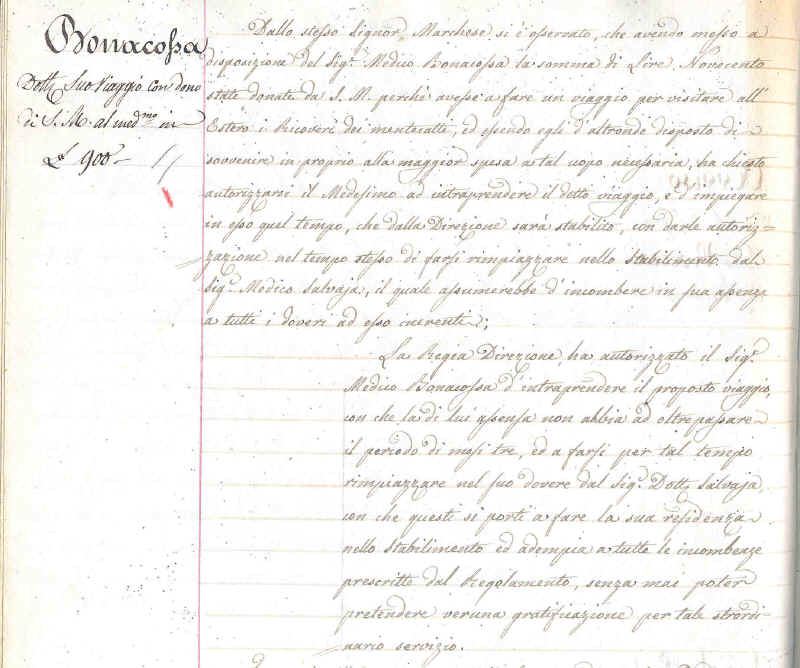 Bonacossa
Dott. Suo Viaggio con dono
di S. M. al med.mo in
L. 900 -
Dallo stesso Signor Marchese si è osservato, che avendo messo a
disposizione del Sig.r Medico Bonacossa la somma di Lire Novecento
state donate da S. M. perchè avesse a fare un viaggio per visitare all'
Estero i Ricoveri dei mentecatti, ed essendo egli d'altronde disposto di
sovvenire in proprio alla maggior spesa a tal uopo necessaria, ha chiesto
autorizzarsi il Medesimo ad intraprendere il detto viaggio, e d'impiegare
in esso quel tempo, che dalla Direzione sarà stabilito, con darle autoriz=
zazione nel tempo stesso di farsi rimpiazzare nello Stabilimento dal
Sig.r Medico Salvaja, il quale assumerebbe d'incombere in sua assenza
a tutti i doveri ad esso inerenti;
La Regia Direzione, ha autorizzato il Sig.r
Medico Bonacossa d'intraprendere il proposto viaggio,
con che la di lui assensa non abbia ad oltrepassare
il periodo di mesi tre, ed a farsi per tal tempo
rimpiazzare nel suo dovere dal Sig.r Dott. Salvaja,
con che questi si porti a fare la sua residenza
nello Stabilimento ed adempia a tutte le incombenze
prescritte dal Regolamento, senza mai poter
pretendere veruna gratificazione per tale strordi=
nario servizio.